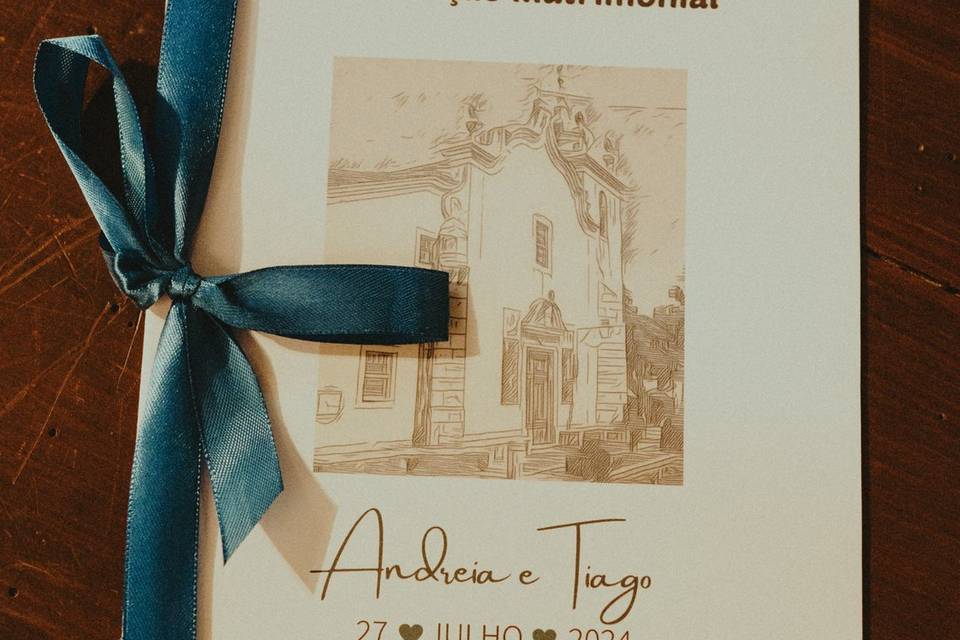 Matrimonial
Andreia e Tiago
27 ♥ JULHO ♥ 2024